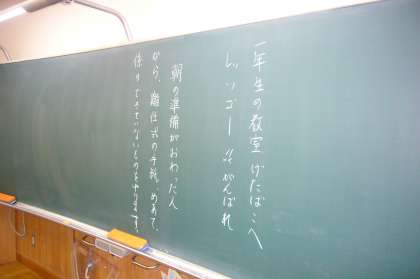 一年生の教室げたばこへ
レッツゴー!! がんばれ
朝の準備がおわった人
から、離任式の手紙、めあて、
係りできていないものをやります。